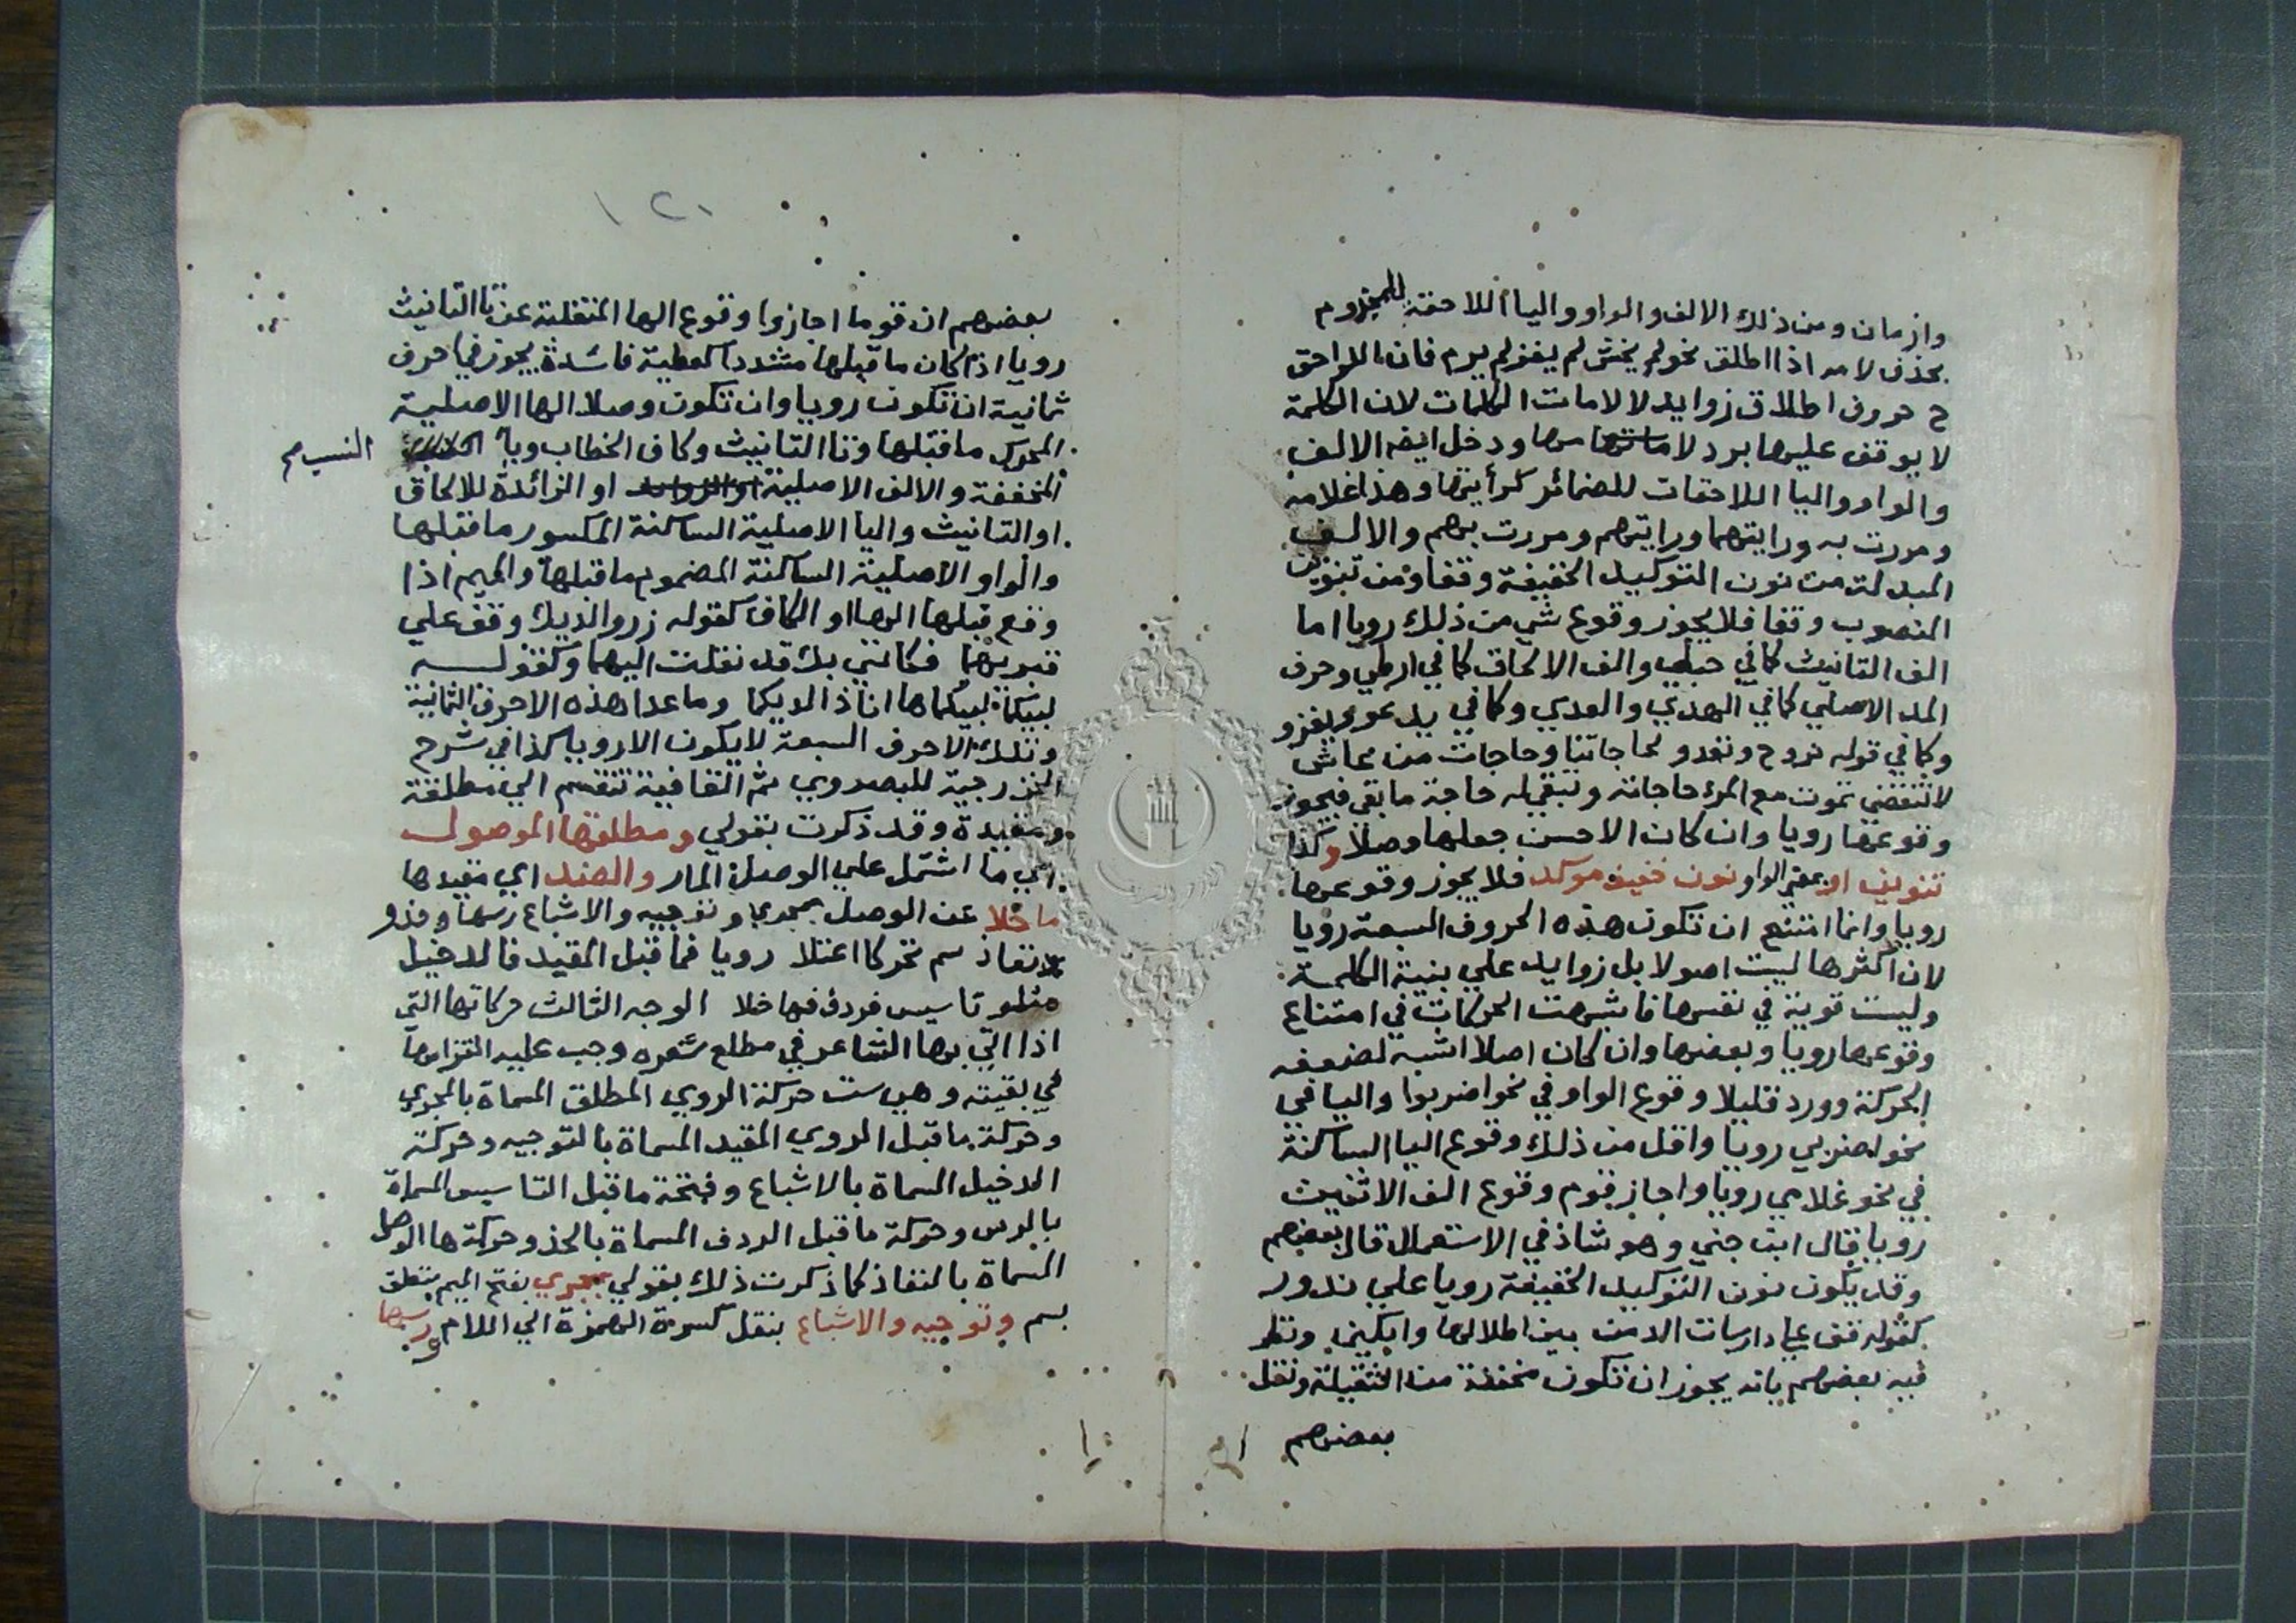 وازمان ومن ذلك الالف والواو واليا اللاحقة للمجزوم
بحذف لامه اذا اطلق نحو لم يخش لم يغز لم يرم فان اللواحق
ح حروف اطلاق زوايد لا لامات الكلمات لان الكلمة
لا يوقف عليها برد لاماتها منها ودخل ايضا الالف
والواو واليا اللاحقات للضمائر كرأيتها وهذا غلامه
ومررت به ورايتهما ورايتهم ومررت بهم والالف
المبدلة من نون التوكيد الخفيفة وقفا ومن تنوين
المنصوب وقفا فلا يجوز وقوع شي من ذلك رويا اما
الف التانيث كما في حبلي والف الالحاق كما في ارطي وحرف
المد الاصلي كما في الهدي والعدي وكما في يدعو ويغزو
وكما في قوله نروح ونغدو لحاجاتنا وحاجات من عاش
لا تنقضي تموت مع المرء حاجاته وتبقي له حاجة ما بقي فيجوز
وقوعها رويا وان كان الاحسن جعلها وصلا وكذا
تنوين او بمعني الواو نون خفيف موكد فلا يجوز وقوعها
رويا وانما امتنع ان تكون هذه الحروف السبعة رويا
لان اكثرها ليست اصولا بل زوايد علي بنية الكلمة
وليست قوية في نفسها فاشبهت الحركات في امتناع
وقوعها رويا وبعضها وان كان اصلا اشبه لضعفه
الحركة وورد قليلا وقوع الواو في نحو اضربوا واليا في
نحو اضربي رويا واقل من ذلك وقوع اليا الساكنة
في نحو غلامي رويا واجاز قوم وقوع الف الاثنين
رويا قال ابن جني وهو شاذ في الاستعمال قال بعضهم
وقد يكون نون التوكيد الخفيفة رويا علي ندور
كقوله قف علي دارسات الدمن بين اطلالها وابكين ونظر
فيه بعضهم بانه يجوز ان تكون مخففة من الثقيلة ونقل
بعضهم
١٢١
بعضهم ان قوما اجازوا وقوع الها المنقلبة عن تا التانيث
رويا اذا كان ما قبلها مشددا كعطية فائدة يجوز في احرف
ثمانية ان تكون رويا وان تكون وصلا الها الاصلية
المحرك ما قبلها وتا التانيث وكاف الخطاب ويا النسب صح
المخففة والالف الاصلية او الزائدة للالحاق
او التانيث واليا الاصلية الساكنة المكسور ما قبلها
والواو الاصلية الساكنة المضموم ما قبلها والميم اذا
وقع قبلها الها او الكاف كقوله زر والديك وقف علي
قبريهما فكانني بك قد نقلت اليهما وكقوله
لبيكما لبيكما ها انا ذا لديكما وما عدا هذه الاحرف الثمانية
وتلك الاحرف السبعة لا يكون الا رويا كذا في شرح
الخزرجية للبصروي ثم القافية تنقسم الي مطلقة
ومقيدة وقد ذكرت بقولي ومطلقها الموصول
اي ما اشتمل علي الوصل المار والضد اي مقيدها
ما خلا عن الوصل بمجري وتوجيه والاشباع رسها وحذو
نفاذ سم تحركا اعتلا رويا فما قبل المقيد فالدخيل
متلو تاسيس فردف فها خلا الوجه الثالث حركاتها التي
اذا اتي بها الشاعر في مطلع شعره وجب عليه التزامها
في بقيته وهي ست حركة الروي المطلق المسماة بالمجري
وحركة ما قبل الروي المقيد المسماة بالتوجيه وحركة
الدخيل المسماة بالاشباع وفتحة ما قبل التاسيس المسماة
بالرس وحركة ما قبل الردف المسماة بالحذو وحركة ها الوصل
المسماة بالنفاذ كما ذكرت ذلك بقولي بمجري بفتح الميم متعلق
بسم وتوجيه والاشباع بنقل كسرة الهمزة الي اللام رسها
و